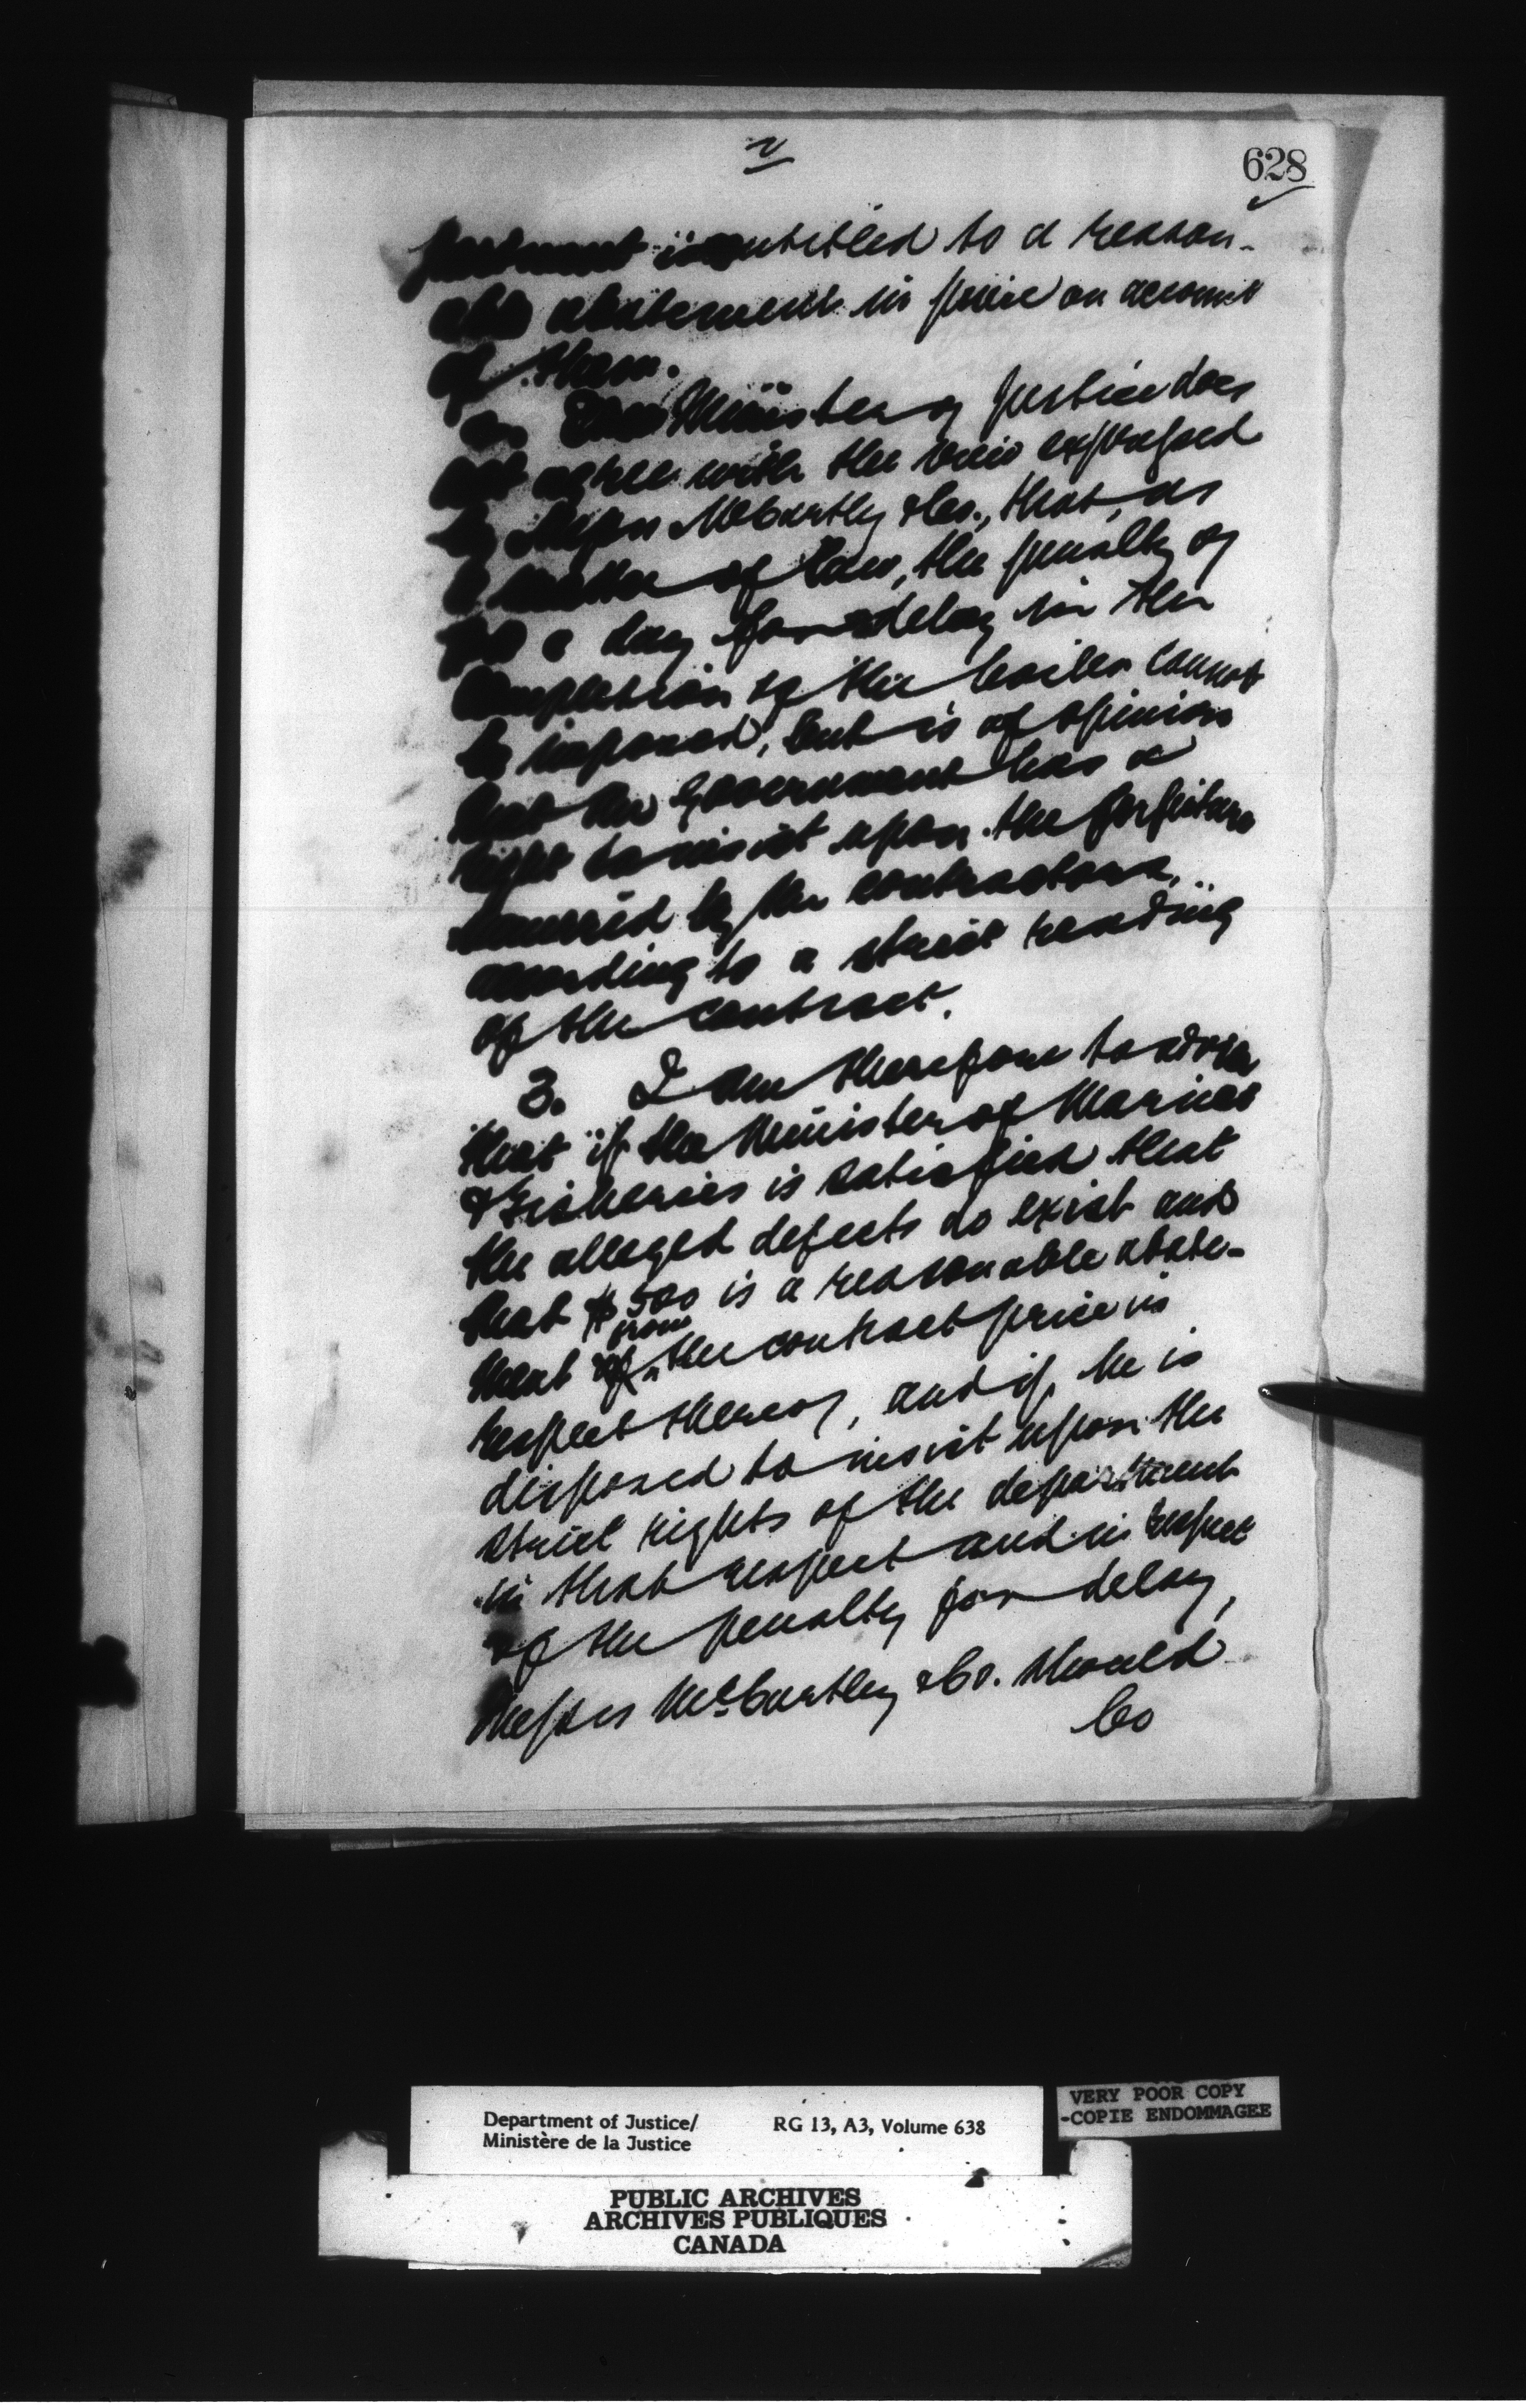 2
628
partment is entitled to a reason-
able abatement in price on account
of them.
2. The Minister of Justice does
not agree with the view expressed
by Messrs McCarthy & Co., that, as
a matter of law, the penalty of
a day for delay in the
completion of the boiler cannot
be imposed, but is of opinion
that the Government has a
right to insist upon the forfeiture
incurred by the contractors,
according to a strict reading
of the contract.
3. I am therefore to advise
that if the Minister of Marine
& Fisheries is satisfied that
the alleged defects do exist and
that $500 is a reasonable abate-
from
ment of the contract price in
respect thereof, and if he is
disposed to insist upon the
strict rights of the department
in that respect and in respect
of the penalty for delay,
Messrs McCarthy & Co. should
be
Department of Justice/
Ministère de la Justice
RG 13, A3, Volume 638
VERY POOR COPY
-COPIE ENDOMMAGEE
PUBLIC ARCHIVES
ARCHIVES PUBLIQUES
CANADA